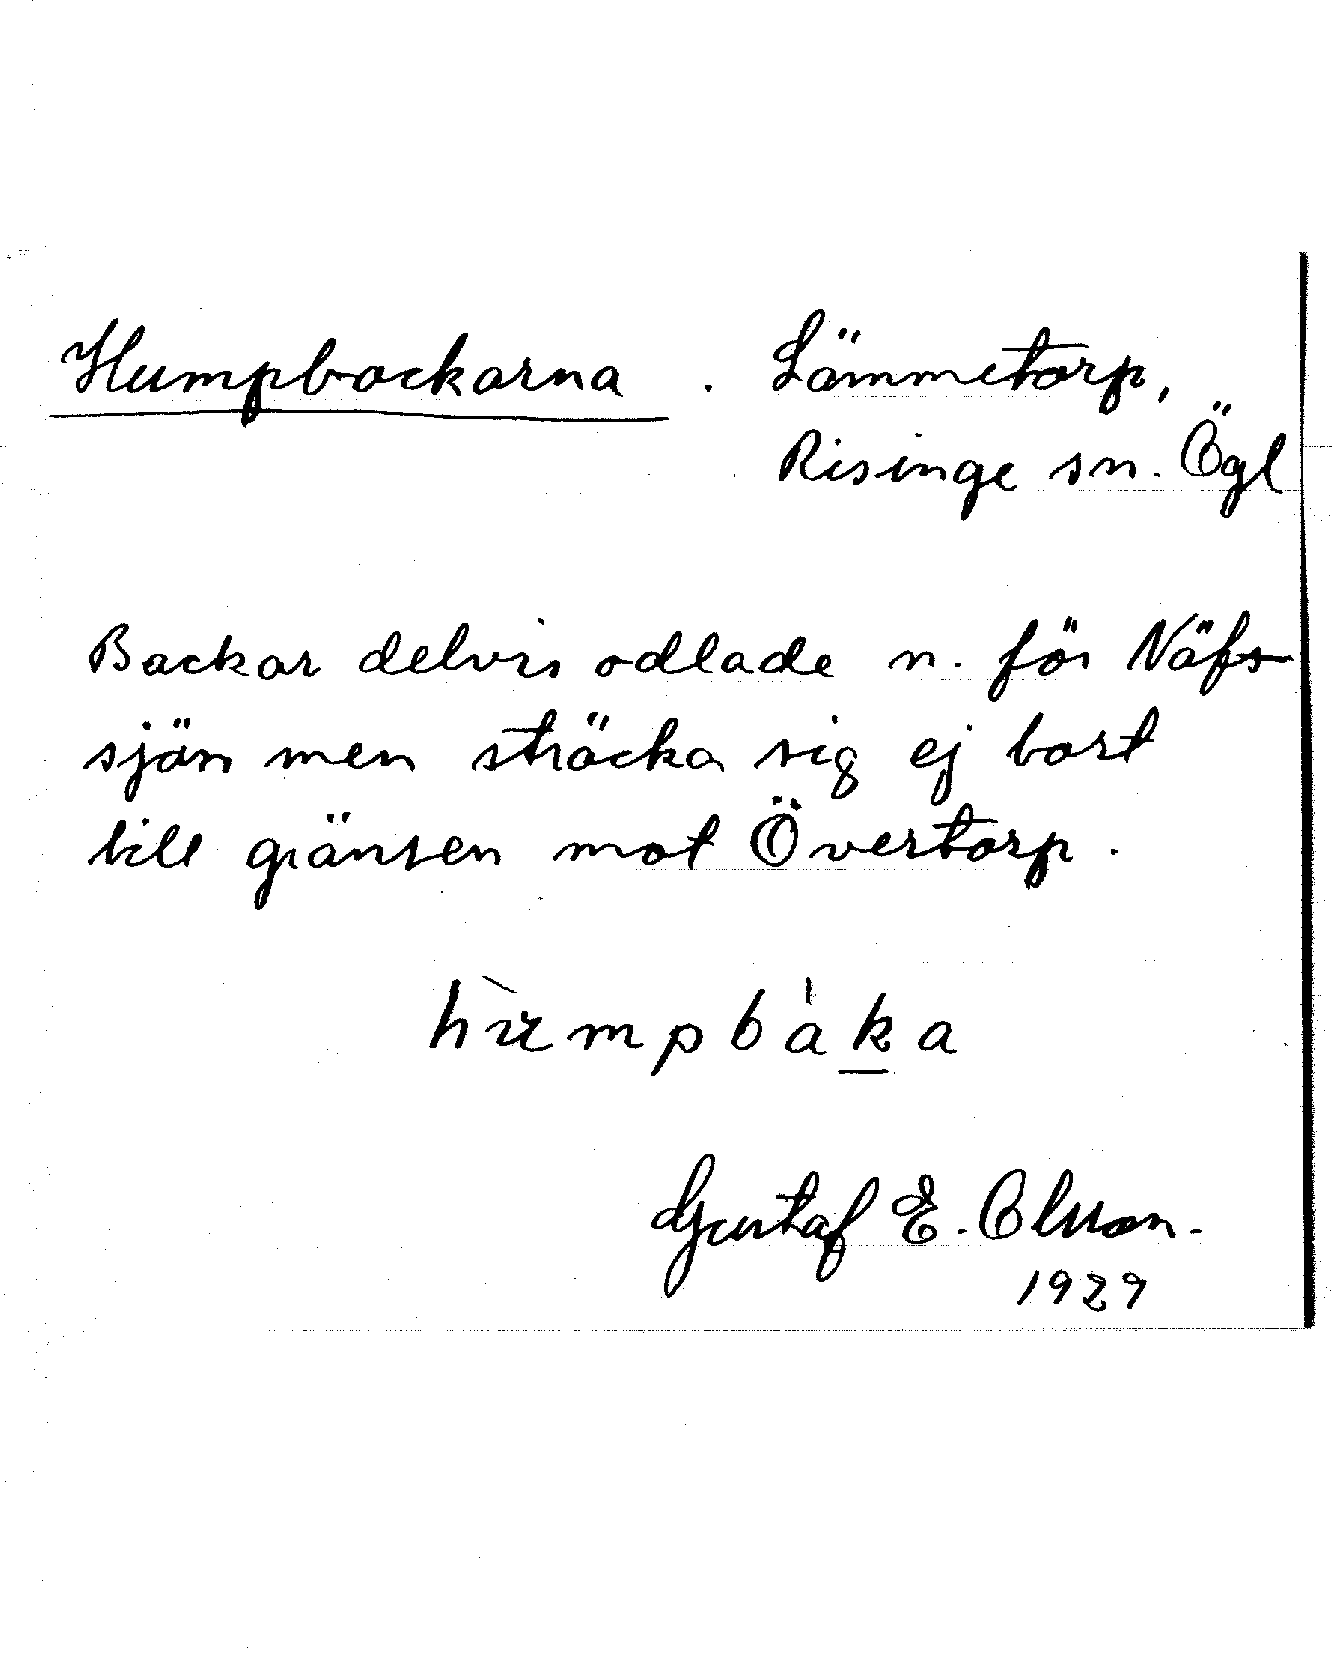 Humpbackarna. Lämmetorp,
Risinge sn. Ögl
Backar delvis odlade n. för Näfs-
sjön men sträcka sig ej bort
till gränsen mot Övertorp.
hùmpbàka
Gustaf E. Olsson.
1929